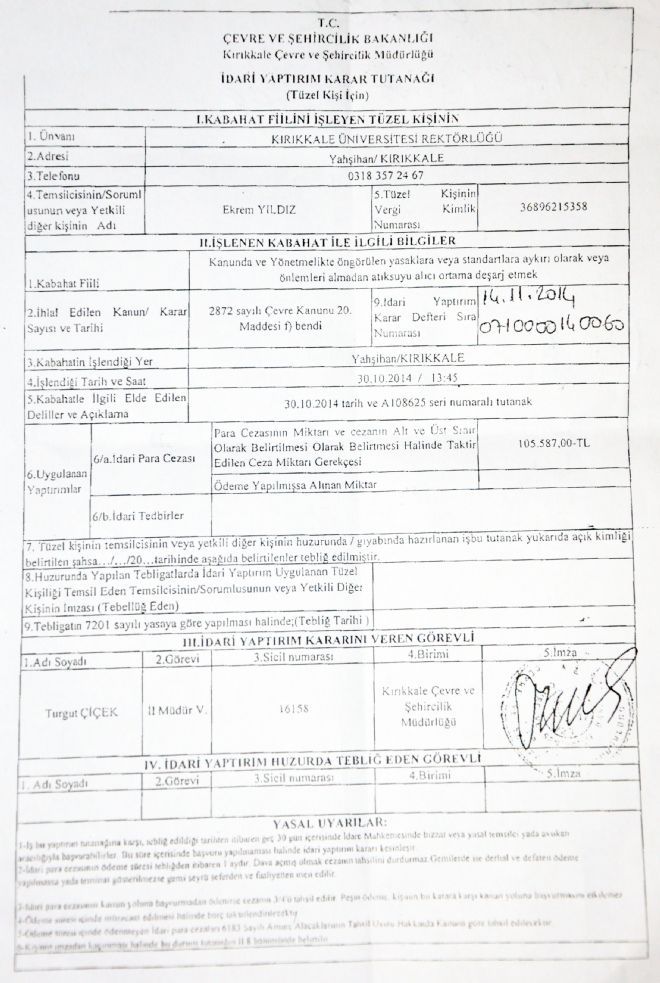 T.C.
ÇEVRE VE ŞEHİRCİLİK BAKANLIĞI
Kırıkkale Çevre ve Şehircilik Müdürlüğü
İDARİ YAPTIRIM KARAR TUTANAĞI
(Tüzel Kişi İçin)
I.KABAHAT FİİLİNİ İŞLEYEN TÜZEL KİŞİNİN
1. Ünvanı KIRIKKALE ÜNİVERSİTESİ REKTÖRLÜĞÜ
2.Adresi Yahşihan/ KIRIKKALE
3.Telefonu 0318 357 24 67
4.Temsilcisinin/Soruml
usunun veya Yetkili
diğer kişinin Adı
Ekrem YILDIZ
5.Tüzel Kişinin
Vergi Kimlik
Numarası
36896215358
II.İŞLENEN KABAHAT İLE İLGİLİ BİLGİLER
1.Kabahat Fiili
Kanunda ve Yönetmelikte öngörülen yasaklara veya standartlara aykırı olarak veya
önlemleri almadan atıksuyu alıcı ortama deşarj etmek
2.İhlal Edilen Kanun/ Karar
Sayısı ve Tarihi
2872 sayılı Çevre Kanunu 20.
Maddesi f) bendi
9.İdari Yaptırım
Karar Defteri Sıra
Numarası
14.11.2014
0710000140060
3.Kabahatin İşlendiği Yer Yahşihan/KIRIKKALE
4.İşlendiği Tarih ve Saat 30.10.2014 / 13:45
5.Kabahatle İlgili Elde Edilen
Deliller ve Açıklama
30.10.2014 tarih ve A108625 seri numaralı tutanak
6.Uygulanan
Yaptırımlar
6/a.İdari Para Cezası
Para Cezasının Miktarı ve cezanın Alt ve Üst Sınır
Olarak Belirtilmesi Olarak Belirtmesi Halinde Taktir
Edilen Ceza Miktarı Gerekçesi
105.587,00-TL
Ödeme Yapılmışsa Alınan Miktar
6/b.İdari Tedbirler
7. Tüzel kişinin temsilcisinin veya yetkili diğer kişinin huzurunda / gıyabında hazırlanan işbu tutanak yukarıda açık kimliği
belirtilen şahsa.../.../20...tarihinde aşağıda belirtilenler tebliğ edilmiştir.
8.Huzurunda Yapılan Tebligatlarda İdari Yaptırım Uygulanan Tüzel
Kişiliği Temsil Eden Temsilcisinin/Sorumlusunun veya Yetkili Diğer
Kişinin İmzası (Tebellüğ Eden)
9.Tebligatın 7201 sayılı yasaya göre yapılması halinde;(Tebliğ Tarihi )
III.İDARİ YAPTIRIM KARARINI VEREN GÖREVLİ
1.Adı Soyadı 2.Görevi 3.Sicil numarası 4.Birimi 5.İmza
Turgut ÇİÇEK İl Müdür V. 16158
Kırıkkale Çevre ve
Şehircilik
Müdürlüğü
IV. İDARİ YAPTIRIM HUZURDA TEBLİĞ EDEN GÖREVLİ
1. Adı Soyadı 2.Görevi 3.Sicil numarası 4.Birimi 5.İmza
YASAL UYARILAR:
1-İş bu yaptırım tutanağına karşı, tebliğ edildiği tarihten itibaren geç 30 gün içerisinde İdare Mahkemesinde bizzat veya yasal temsilci yada avukan
aracılığıyla başvurabilirler. Bu süre içerisinde başvuru yapılmaması halinde idari yaptırım kararı kesinleşir.
2-İdari para cezasının ödeme süresi tebliğden itibaren 1 aydır. Dava açmış olmak cezanın tahsilini durdurmaz. Gemilerde ise derhal ve defaten ödeme
yapılmassa yada teminat gösterilmezse gemi seyrü seferden ve faaliyetten men edilir.
3-İdari para cezasının kanun yoluna başvurmadan ödenirse cezanın 3/4'ü tahsil edilir. Peşin ödeme, kişinin bu karara karşı kanun yoluna başvurmasını etkilemez
4-Ödeme süresi içinde müracaat edilmesi halinde borç taksitlendirilecektir
5-Ödeme süresi içinde ödenmeyen İdari para cezaları 6183 Sayılı Amme Alacaklarının Tahsil Usulü Hakkında Kanuna göre tahsil edilecektir.